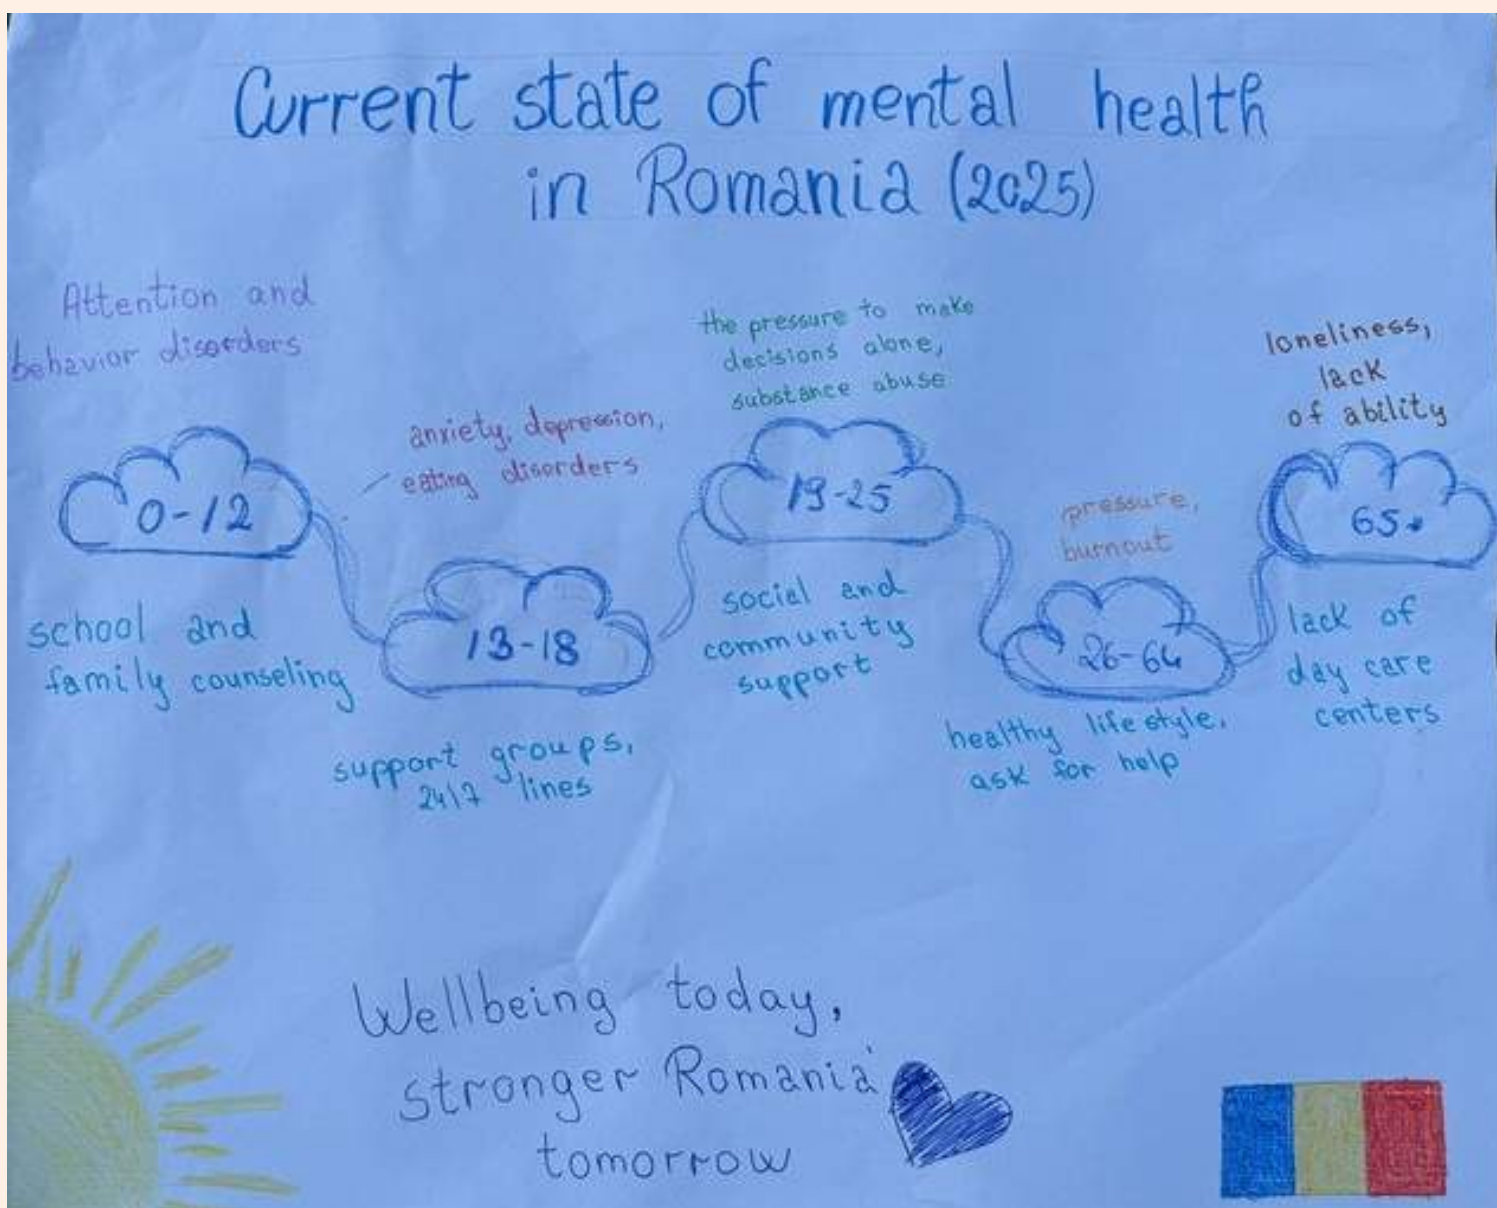 Current state of mental health
in Romania (2025)
Attention and
behavior disorders
0-12
school and
family counseling
anxiety, depression,
eating disorders
13-18
support groups,
24/7 lines
the pressure to make
decisions alone,
substance abuse
19-25
social and
community
support
pressure,
burnout
26-64
healthy lifestyle,
ask for help
loneliness,
lack
of ability
65+
lack of
day care
centers
Wellbeing today,
stronger Romania
tomorrow